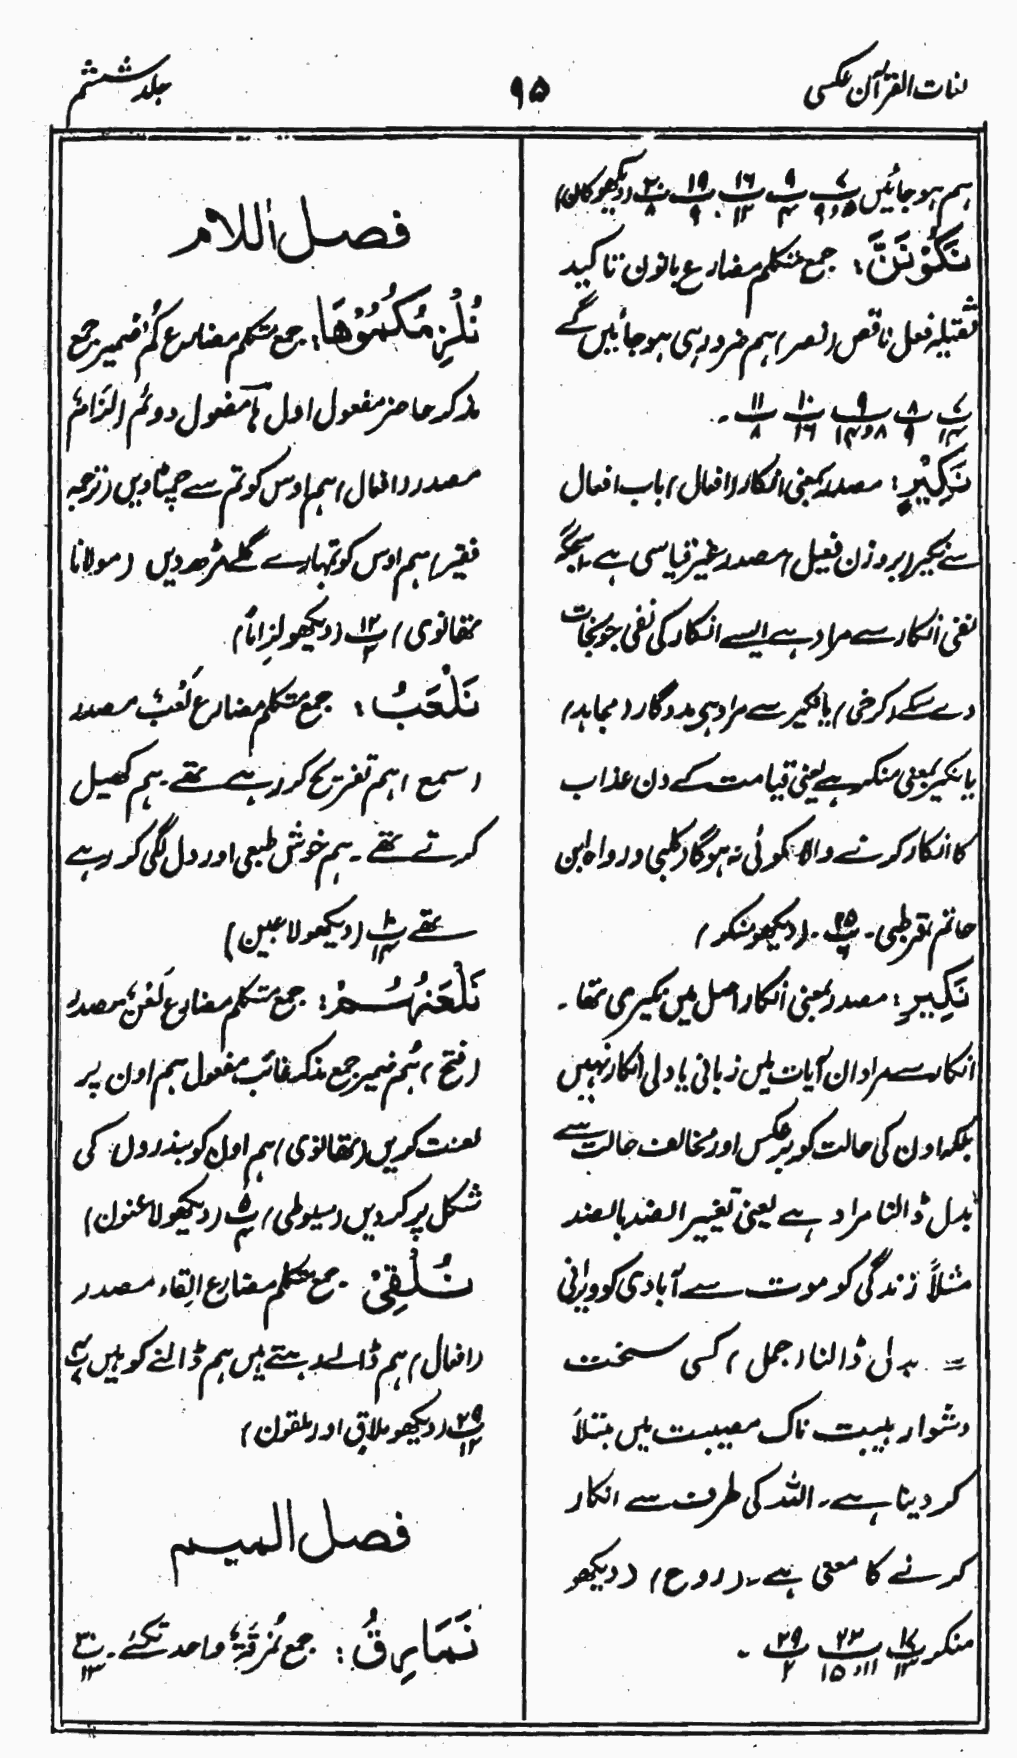 لغات القرآن عکسی
۹۵
جلد ششم
ہم ہوجائیں پ۷ ۵و۹ پ۹ ۴ پ۱۶ ۱۲ پ۱۹ ۹ پ۲۰ ۸ (دیکھو کان)
نَکُوْنَنَّ: جمع متکلم مضارع بانون تاکید
ثقیلہ فعل ناقص (نصر) ہم ضرور ہی ہوجائیں گے
پ۷ ۱۴ پ۸ ۹ پ۹ ۸و۱۴ پ۱۰ ۱۶ پ۱۱ ۸ ۔
نَکِیْرِ: مصدر بمعنی انکار (افعال) باب افعال
سے نکیر (بروزن فعیل) مصدر غیر قیاسی ہے۔ اسجگہ
نفی انکار سے مراد ہے ایسے انکار کی نفی جو نجات
دے سکے (کرخی) یا نکیر سے مراد ہی مددگار (مجاہد)
یا نکیر بمعنی منکر ہے یعنی قیامت کے دن عذاب
کا انکار کرنے والا کوئی نہ ہوگا (کلبی ورواہ ابن
حاتم قرطبی۔ پ۲۵ ۶ ۔ (دیکھو منکر)
نَکِیْرِ: مصدر بمعنی انکار اصل میں نکیری تھا۔
انکار سے مراد ان آیات میں زبانی یا دلی انکار نہیں
بلکہ اون کی حالت کو برعکس اور مخالف حالت سے
بدل ڈالنا مراد ہے یعنی تغییر الضد بالضد
مثلاً زندگی کو موت سے آبادی کو ویرانی
سے بدل ڈالنا (جمل) کسی سخت
دشوار ہیبت ناک مصیبت میں مبتلا
کر دینا ہے۔ اللہ کی طرف سے انکار
کرنے کا معنی ہے۔ (روح) (دیکھو
منکر پ۱۷ ۱۳ پ۲۲ ۱۱و۱۵ پ۲۹ ۲ ۔
فصل اللام
نُلْزِمُکُمُوْھَا: جمع متکلم مضارع کُمْ ضمیر جمع
مذکر حاضر مفعول اول ہا مفعول دوئم اِلزَامٌ
مصدر (افعال) ہم اوس کو تم سے چمٹا دیں (ترجمہ
فقیر) ہم اوس کو تمہارے گلے مڑھ دیں (مولانا
تھانوی) پ۱۲ ۲ (دیکھو لزاماً)
نَلْعَبُ: جمع متکلم مضارع لَعْبٌ مصدر
(سمع) ہم تفریح کر رہے تھے۔ ہم کھیل
کرتے تھے۔ ہم خوش طبعی اور دل لگی کر رہے
تھے پ۱۰ ۱۴ (دیکھو لاعبین)
نَلْعَنَہُمْ: جمع متکلم مضارع لَعْنٌ مصدر
(فتح) ہُم ضمیر جمع مذکر غائب مفعول ہم اون پر
لعنت کریں (تھانوی) ہم اون کو بندروں کی
شکل پر کر دیں (سیوطی) پ۵ ۴ (دیکھو لاعنون)
نُلْقِیْ: جمع متکلم مضارع اِلقاء مصدر
(افعال) ہم ڈالے دیتے ہیں ہم ڈالنے کو ہیں
پ۲۹ ۱۳ (دیکھو ملاق اور ملقون)
فصل المیم
نَمَارِقُ: جمع نُمْرُقَۃٌ واحد تکئے۔ پ۳۰ ۱۳